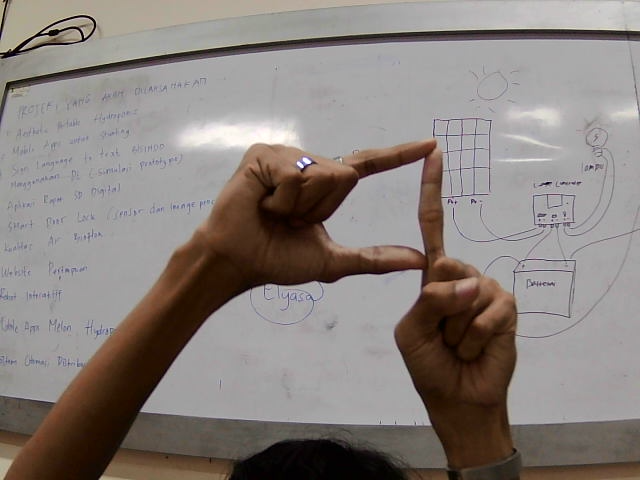 PROJEK YANG AKAN DILAKSANAKAN
Aesthetic Portable Hydroponic
Mobile Apps untuk Stunting
Sign Language to text BISINDO
Menggunakan DL (simulasi prototype)
Aplikasi Rapor SD Digital
Smart Door Lock (sensor dan image proc
Kualitas Air
Website
Robot Interaktif
Mobile Apps Melon, Hydrop
Sistem Otomasi Distribu
Elyasa
P+ P-
lampu
Baterai